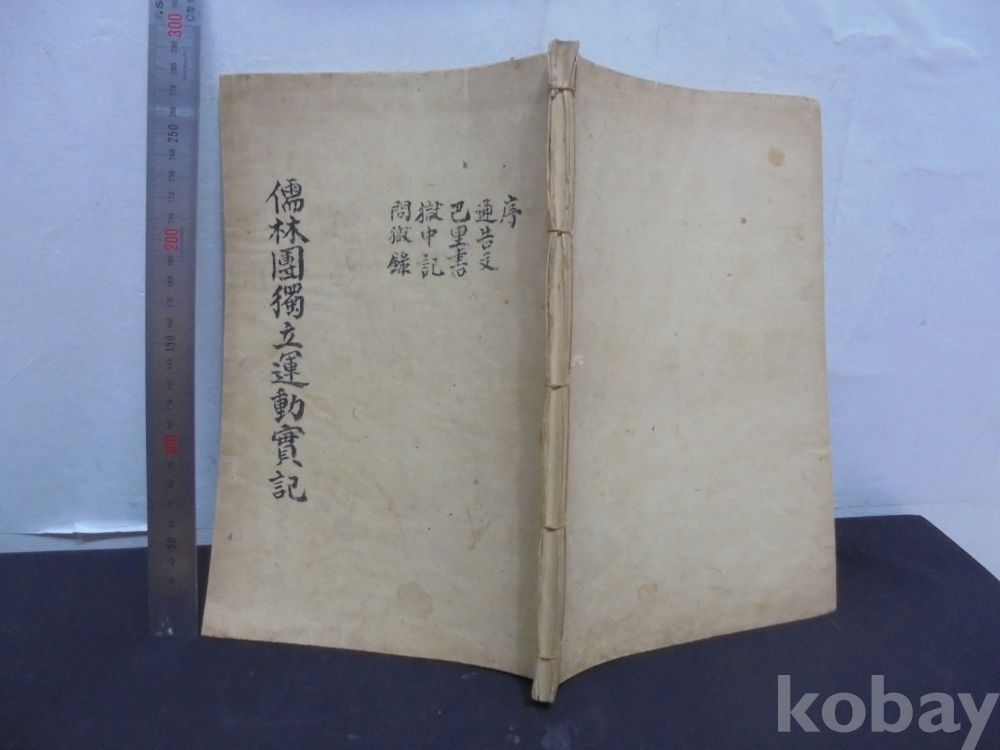 序
通告文
巴里書
獄中記
問獄錄
儒林團獨立運動實記
300
250
200
150
100
50
kobay